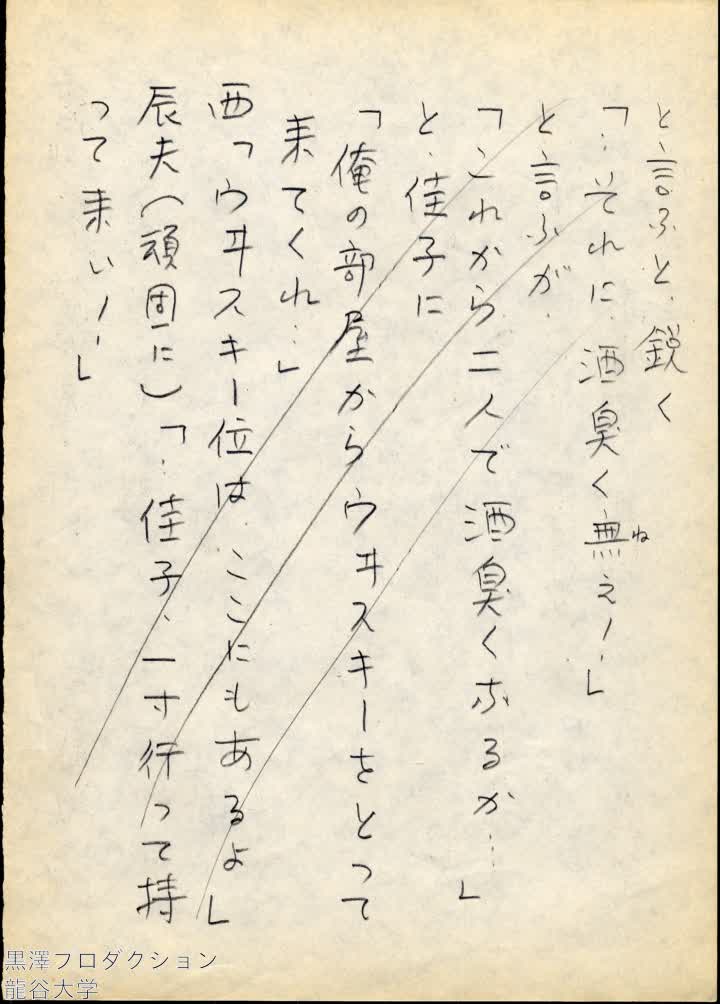 と言ふと、鋭く
「‥それに、酒臭く無(ね)え！‥」
と言ふが、
「これから二人で酒臭くなるか‥‥」
と、佳子に
「俺の部屋からウヰスキーをとって
来てくれ‥」
西「ウヰスキー位は、ここにもあるよ」
辰夫（頑固に）「‥佳子、一寸行って持
って来い！‥」
黒澤プロダクション
龍谷大学